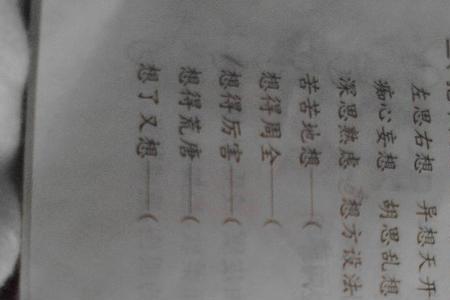 左思右想 异想天开
痴心妄想 胡思乱想
深思熟虑 想方设法
苦苦地想——（
想得周全——（
想得厉害——（
想得荒唐——（
想了又想——（